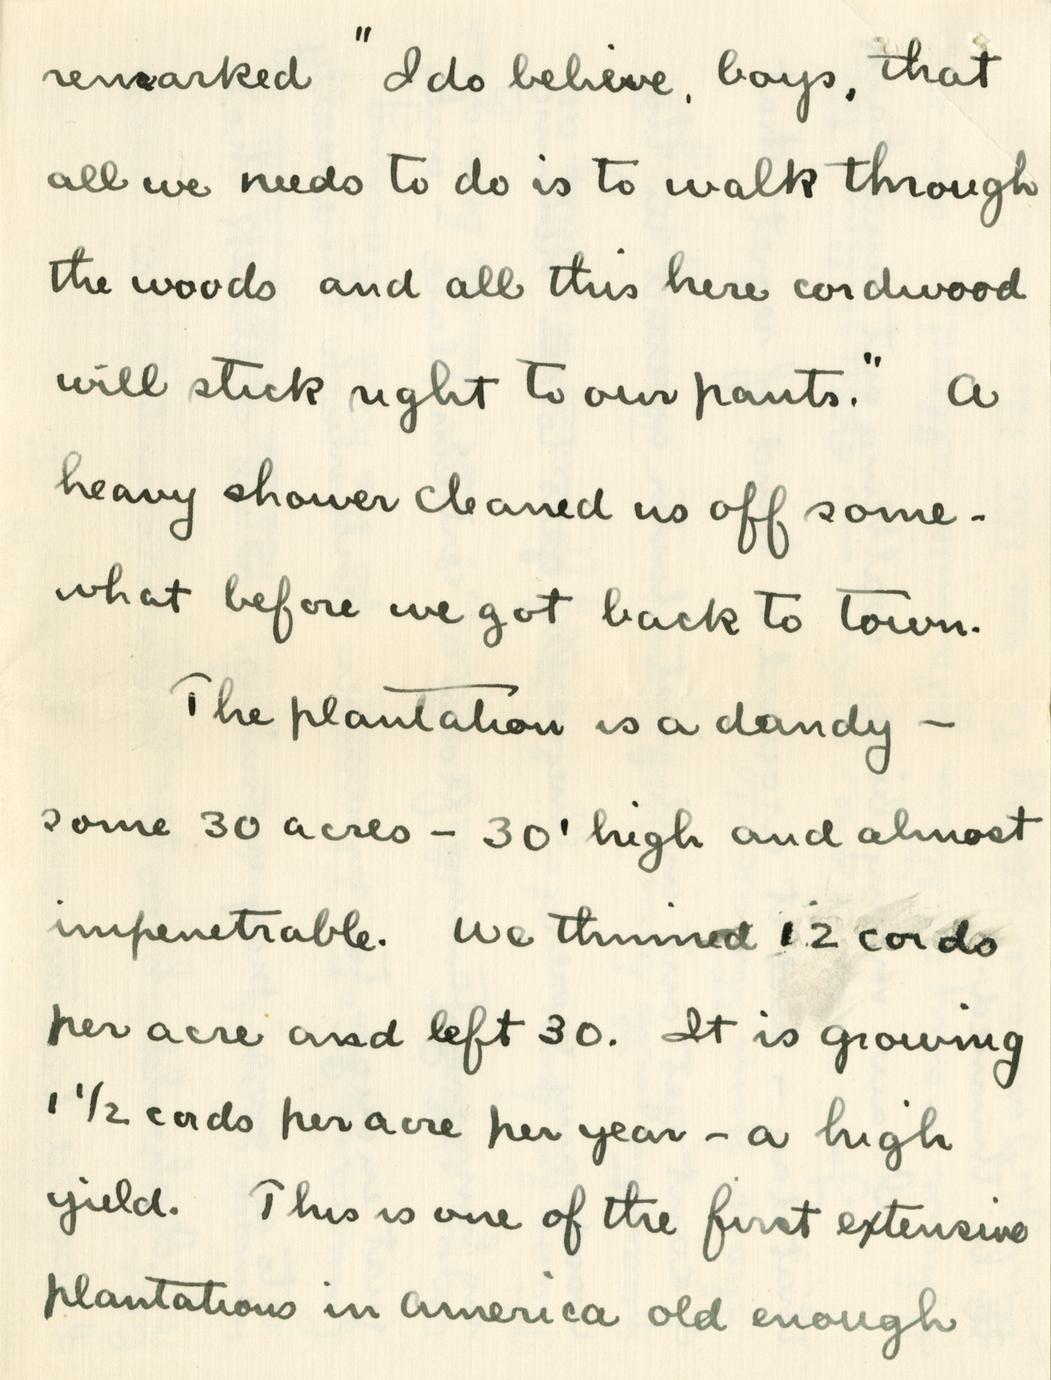 remarked "I do believe, boys, that
all we needs to do is to walk through
the woods and all this here cordwood
will stick right to our pants." A
heavy shower cleaned us off some-
what before we got back to town.
The plantation is a dandy —
some 30 acres — 30' high and almost
impenetrable. We thinned 12 cords
per acre and left 30. It is growing
1 1/2 cords per acre per year — a high
yield. This is one of the first extensive
plantations in America old enough